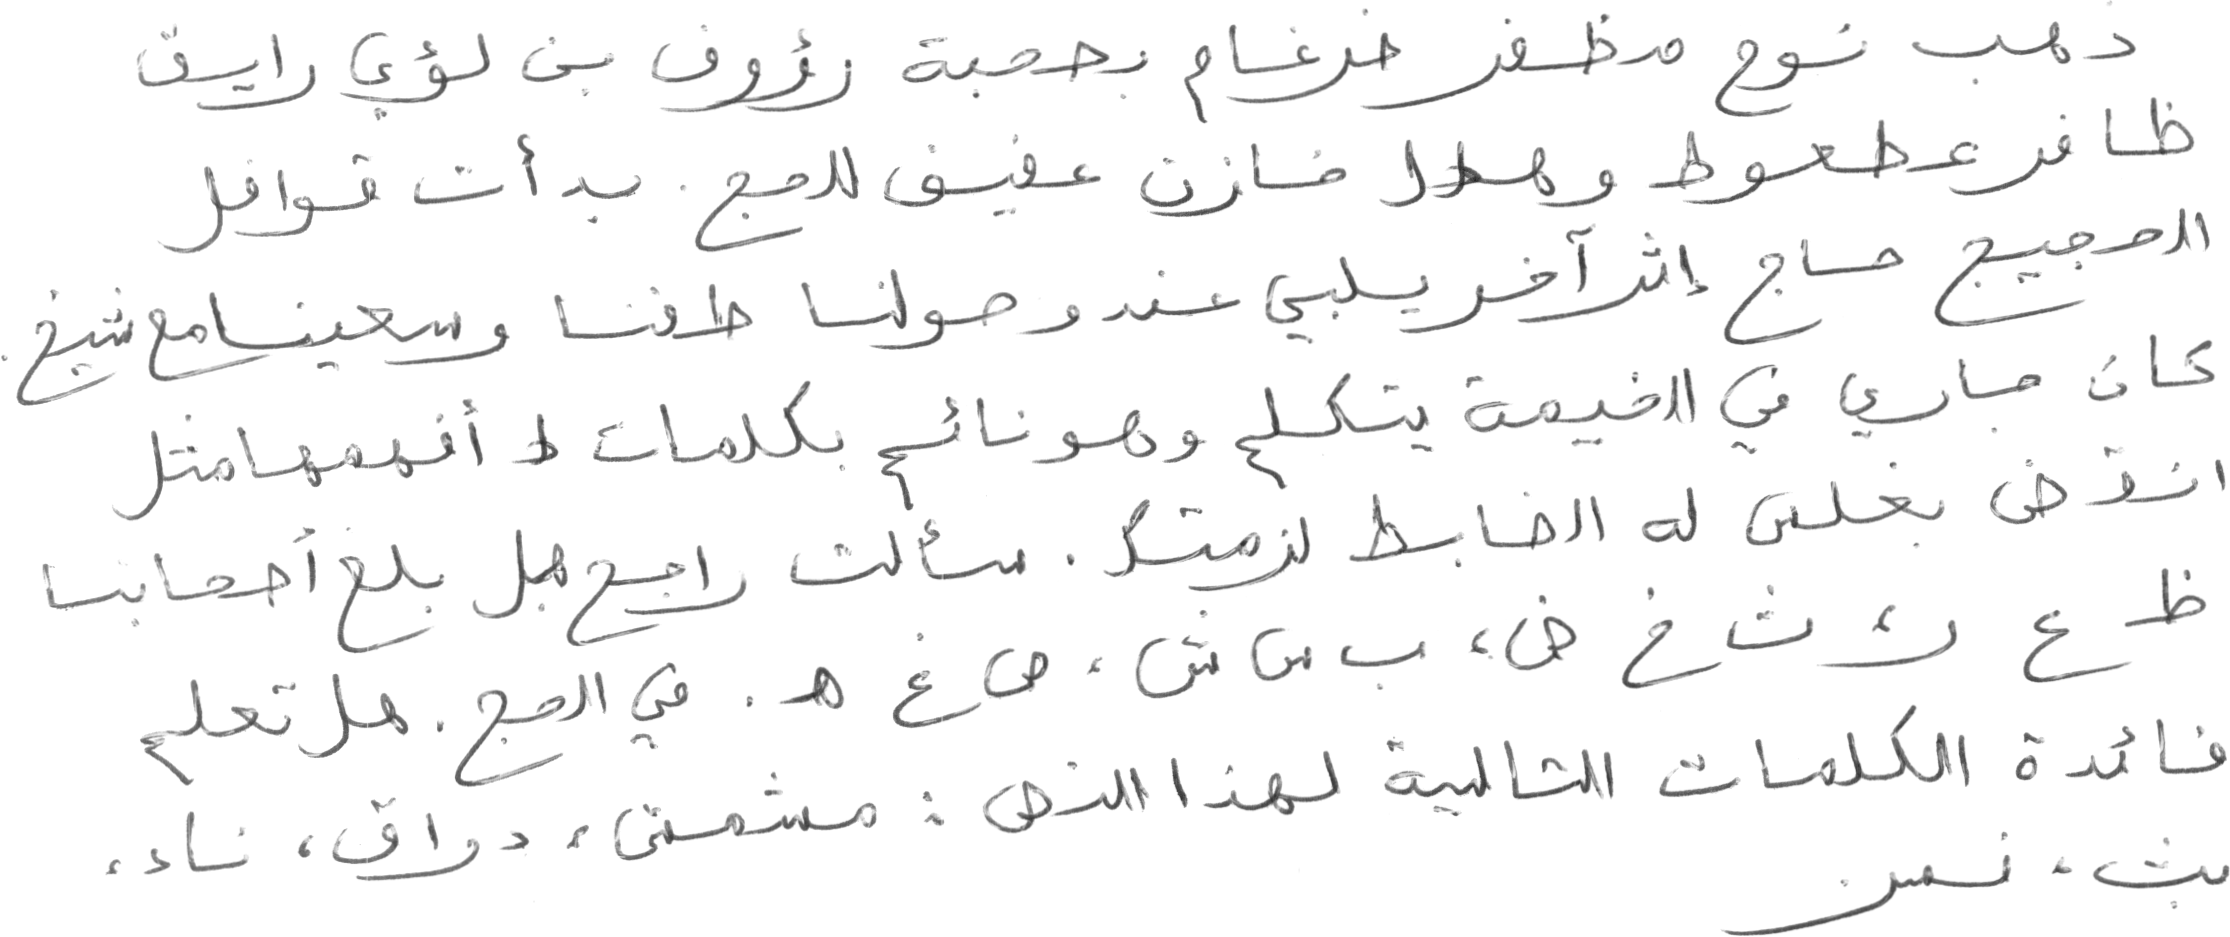 ذهب نوح مظفر ضرغام بصحبة رؤوف بن لؤي رايق
ظافر عطعوط وهلال خازن عفيف للحج. بدأت قوافل
الحجيج حاج إثر آخر يلبي عند وصولنا طفنا وسعينا مع شيخ.
كان جاري في الخيمة يتكلم وهو نائم بكلمات لا أفهمها مثل
انقض بغلس له الضابط لزمتك. سألت راجح هل بلغ أصحابنا
ظ ع ث خ ض، ب س ش، ص غ هـ. في الحج. هل تعلم
فائدة الكلمات التالية لهذا النص : مشمش، دراق، ناء،
بث، نمس